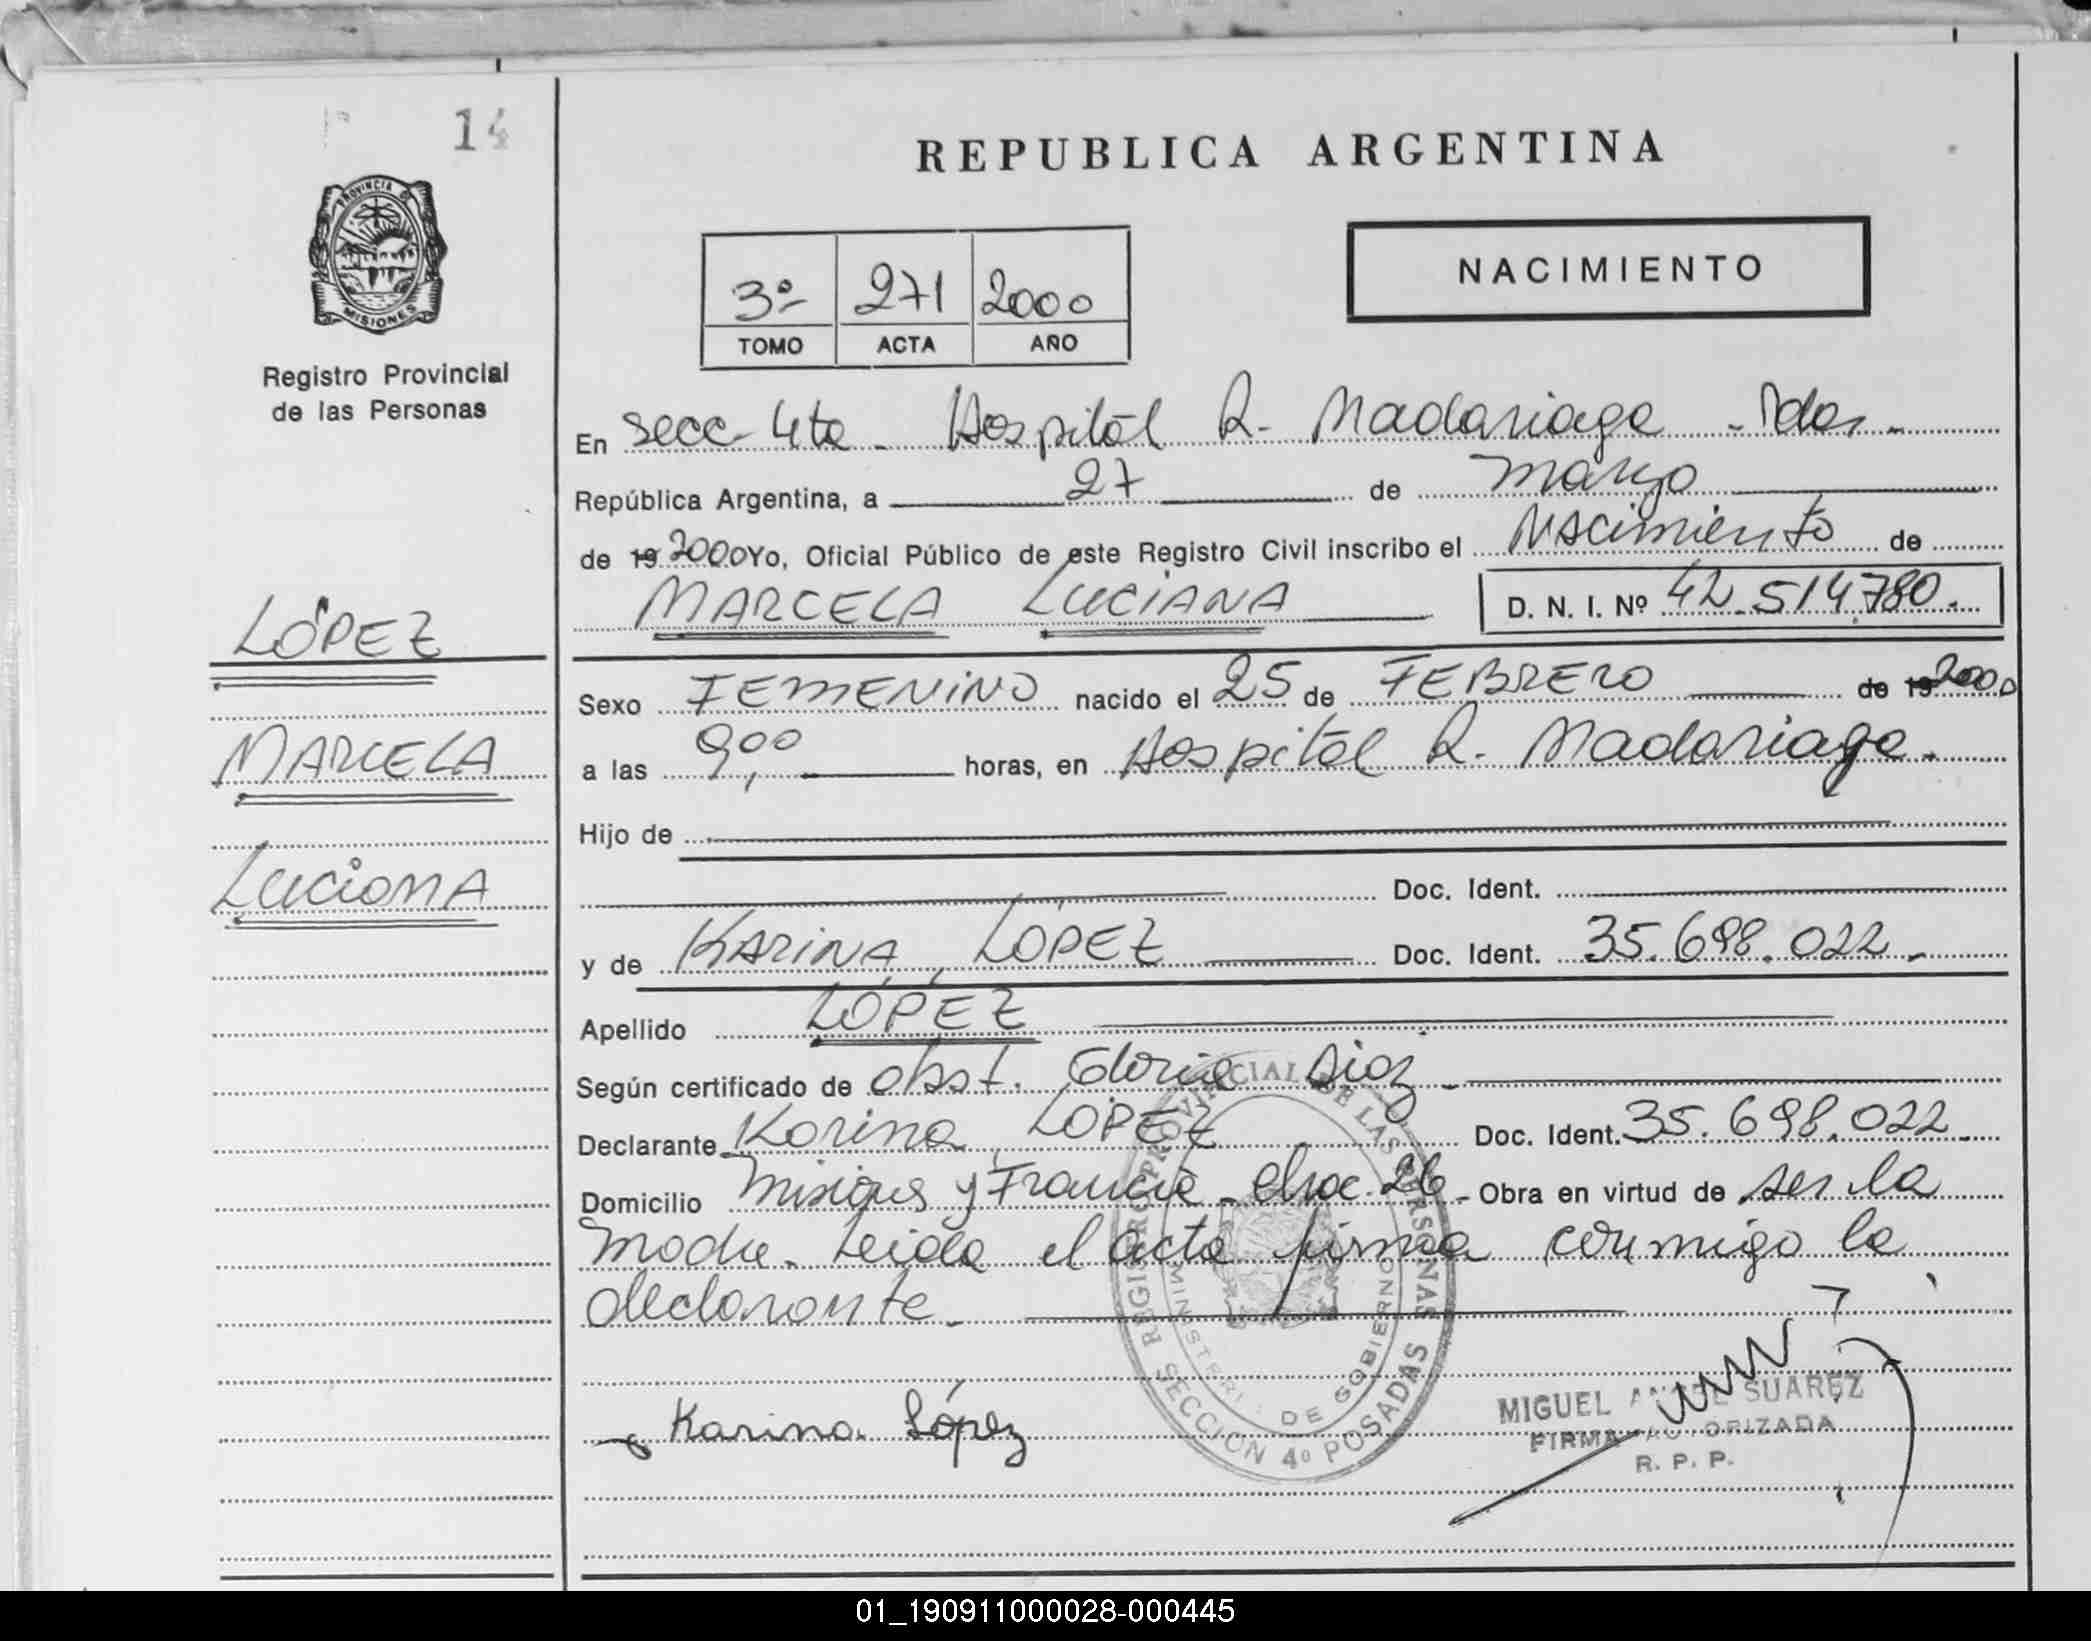 14
REPUBLICA ARGENTINA
PROVINCIA DE
MISIONES
Registro Provincial
de las Personas
3º 271 2000
TOMO ACTA AÑO
NACIMIENTO
En Secc- 4ta - Hospital R. Madariaga - Pdas -
República Argentina, a 27 de Marzo
de 19 2000 Yo, Oficial Público de este Registro Civil inscribo el Nacimiento de
MARCELA LUCIANA D. N. I. Nº 42.514.780.
LÓPEZ
MARCELA
LUCIANA
Sexo FEMENINO nacido el 25 de FEBRERO de 19 2000
a las 9,00 horas, en Hospital R. Madariaga.
Hijo de
Doc. Ident.
y de KARINA LÓPEZ Doc. Ident. 35.698.022.
Apellido LÓPEZ
Según certificado de obst. Gloria Diaz -
Declarante Karina LÓPEZ Doc. Ident. 35.698.022
Domicilio Misiones y Francia - chac. 26 - Obra en virtud de ser la
madre. Leida el acta firma conmigo la
declarante.
Karina López
REGISTRO PROVINCIAL DE LAS PERSONAS
MINISTERI DE GOBIERNO
SECCION 4º POSADAS
MIGUEL ANGEL SUAREZ
FIRMA AUTORIZADA
R. P. P.
01_190911000028-000445